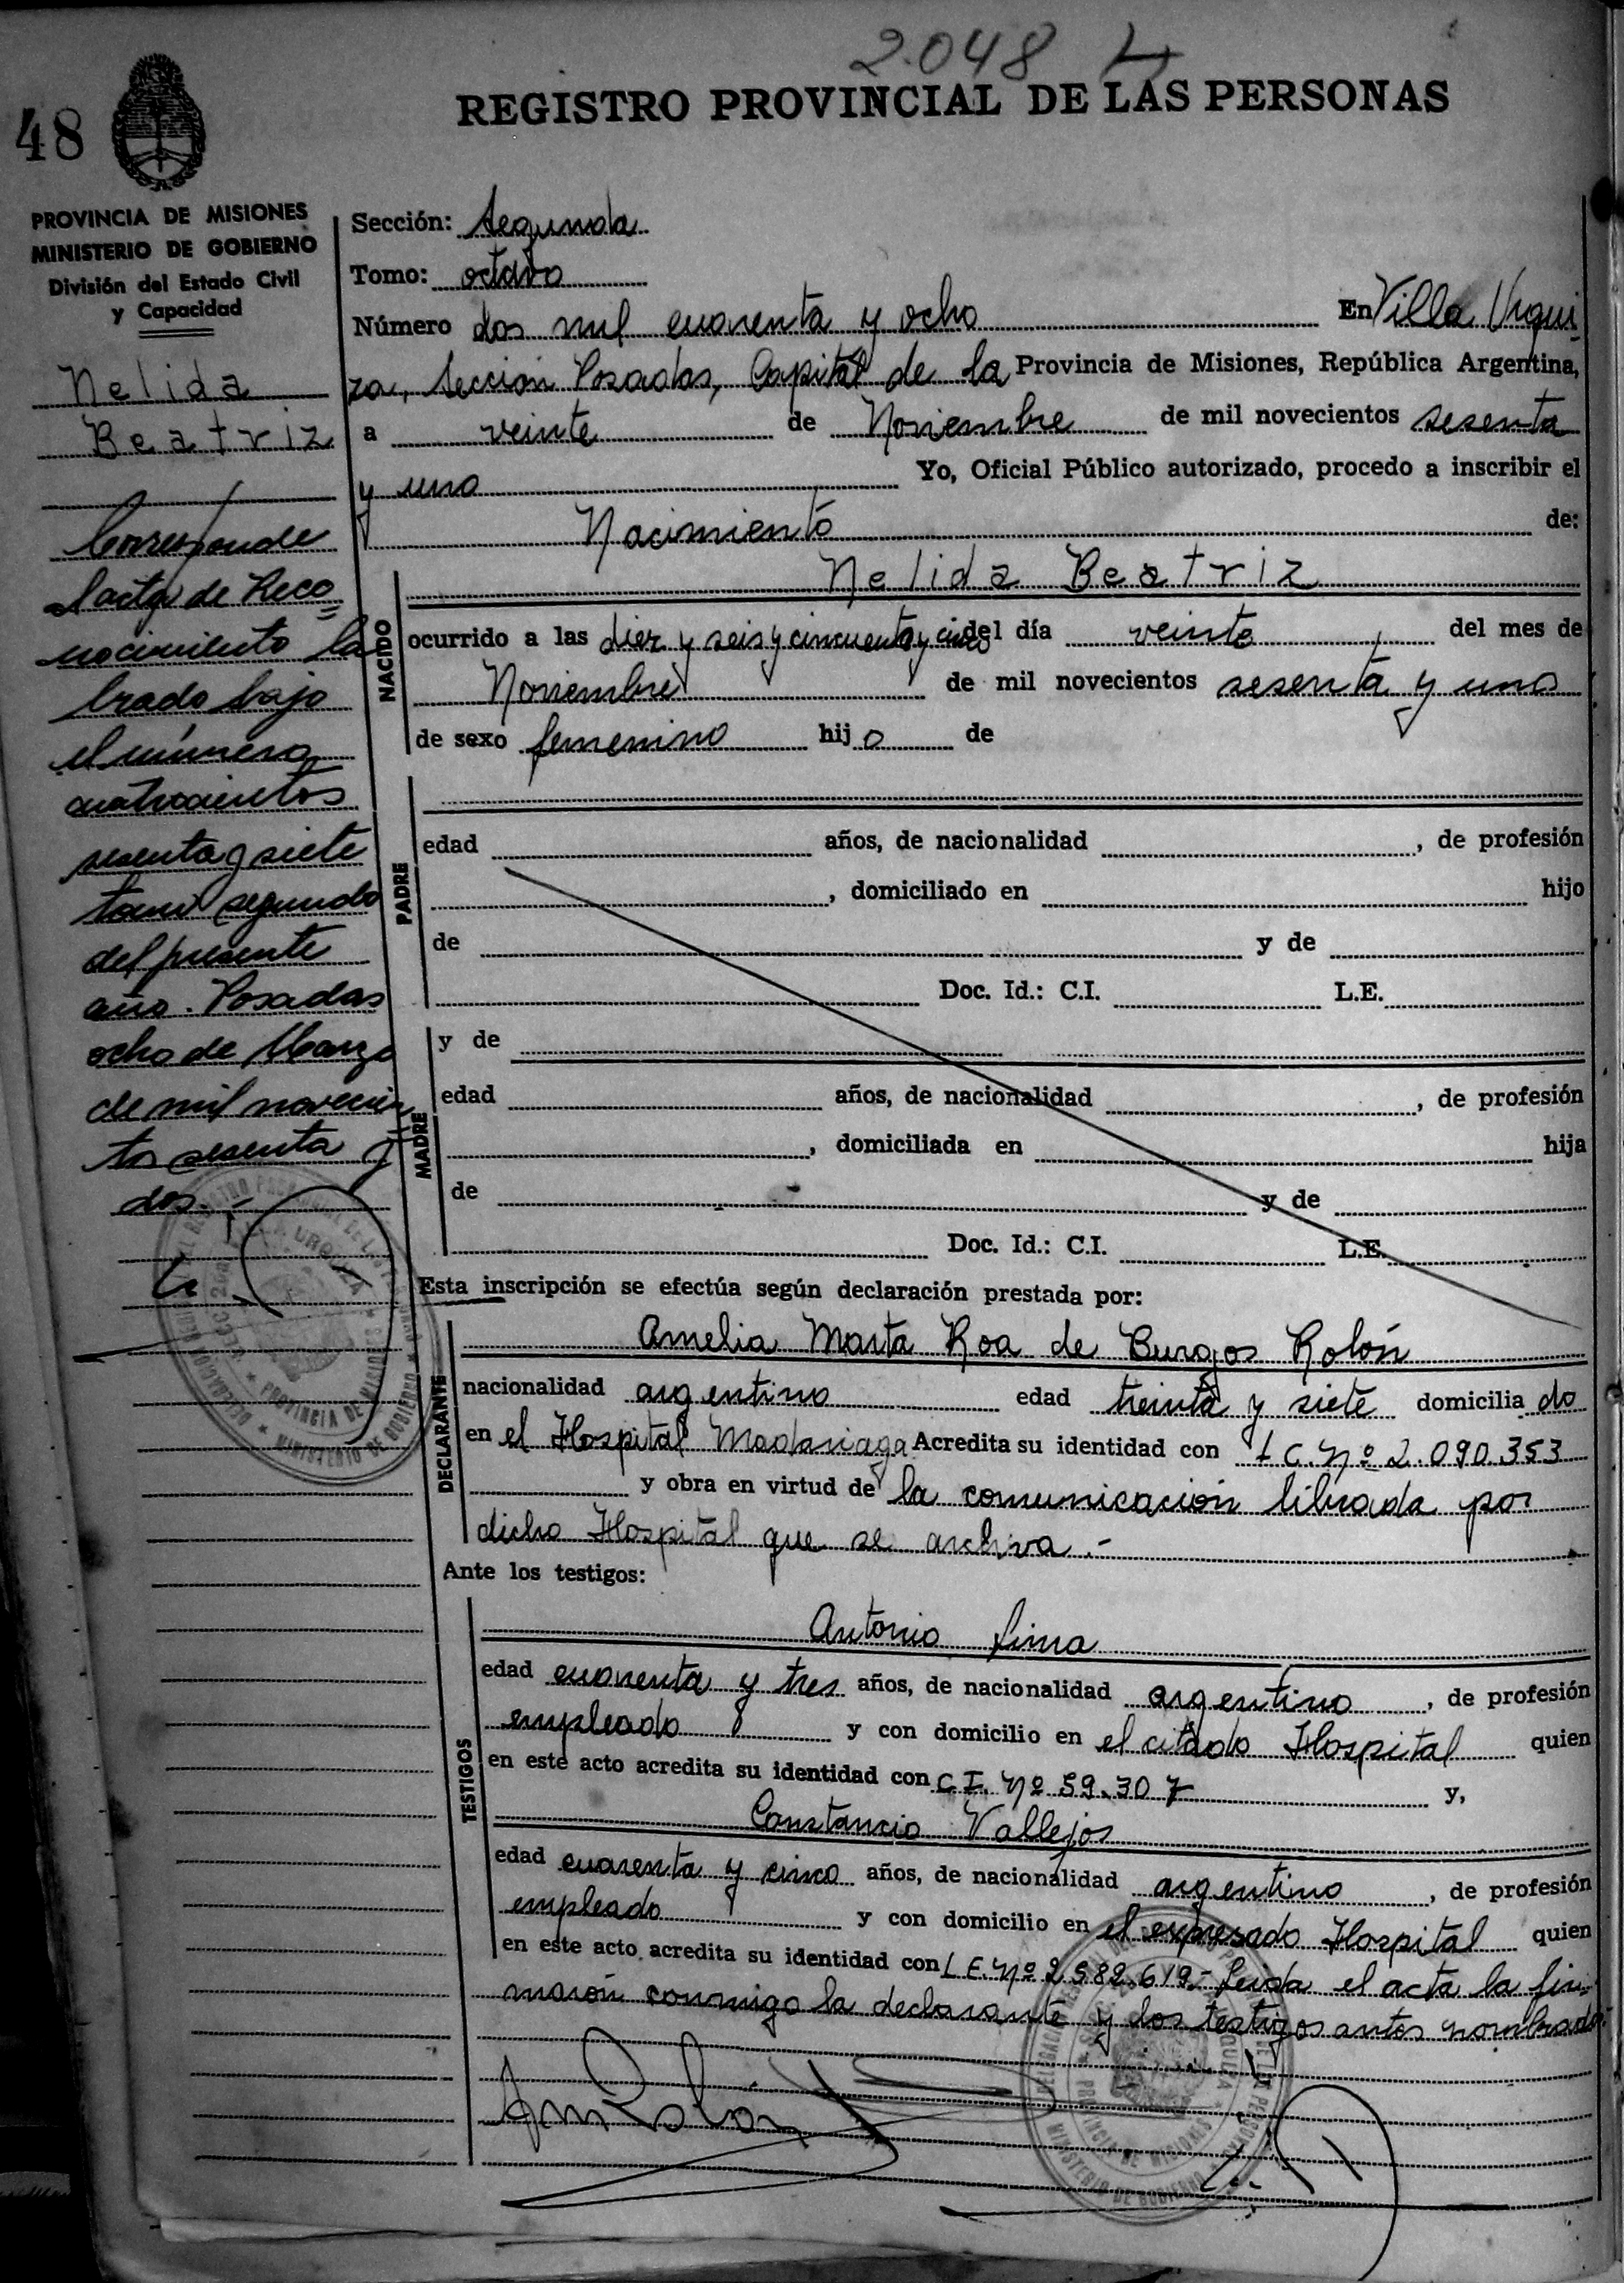 2.048
REGISTRO PROVINCIAL DE LAS PERSONAS
48
PROVINCIA DE MISIONES
MINISTERIO DE GOBIERNO
División del Estado Civil
y Capacidad
Nelida
Beatriz
Corresponde
al acta de Reco
nocimiento la
brado bajo
el número
cuatrocientos
sesenta y siete
tomo segundo
del presente
año. Posadas
ocho de Marzo
de mil novecien
tos sesenta y
dos.-
Sección: Segunda
Tomo: octavo
Número dos mil cuarenta y ocho En Villa Urqui
za, Sección Posadas, Capital de la Provincia de Misiones, República Argentina,
a veinte de Noviembre de mil novecientos sesenta
y uno Yo, Oficial Público autorizado, procedo a inscribir el
Nacimiento de:
Nelida Beatriz
NACIDO
ocurrido a las diez y seis y cincuenta y cinco del día veinte del mes de
Noviembre de mil novecientos sesenta y uno
de sexo femenino hijo de
PADRE
edad años, de nacionalidad , de profesión
, domiciliado en hijo
de y de
Doc. Id.: C.I. L.E.
MADRE
y de
edad años, de nacionalidad , de profesión
, domiciliada en hija
de y de
Doc. Id.: C.I. L.E.
Esta inscripción se efectúa según declaración prestada por:
DECLARANTE
Amelia Marta Roa de Burgos Rolón
nacionalidad argentino edad treinta y siete domicilia do
en el Hospital Madariaga Acredita su identidad con L C. Nº 2.090.353
y obra en virtud de la comunicación librada por
dicho Hospital que se archiva.-
Ante los testigos:
TESTIGOS
Antonio Lima
edad cuarenta y tres años, de nacionalidad argentino , de profesión
empleado y con domicilio en el citado Hospital quien
en este acto acredita su identidad con C I. Nº 59.307 y,
Constancio Vallejos
edad cuarenta y cinco años, de nacionalidad argentino , de profesión
empleado y con domicilio en el expresado Hospital quien
en este acto acredita su identidad con L E. Nº 2.582.619.- Leida el acta la fir-
maron conmigo la declarante y los testigos antes nombrados